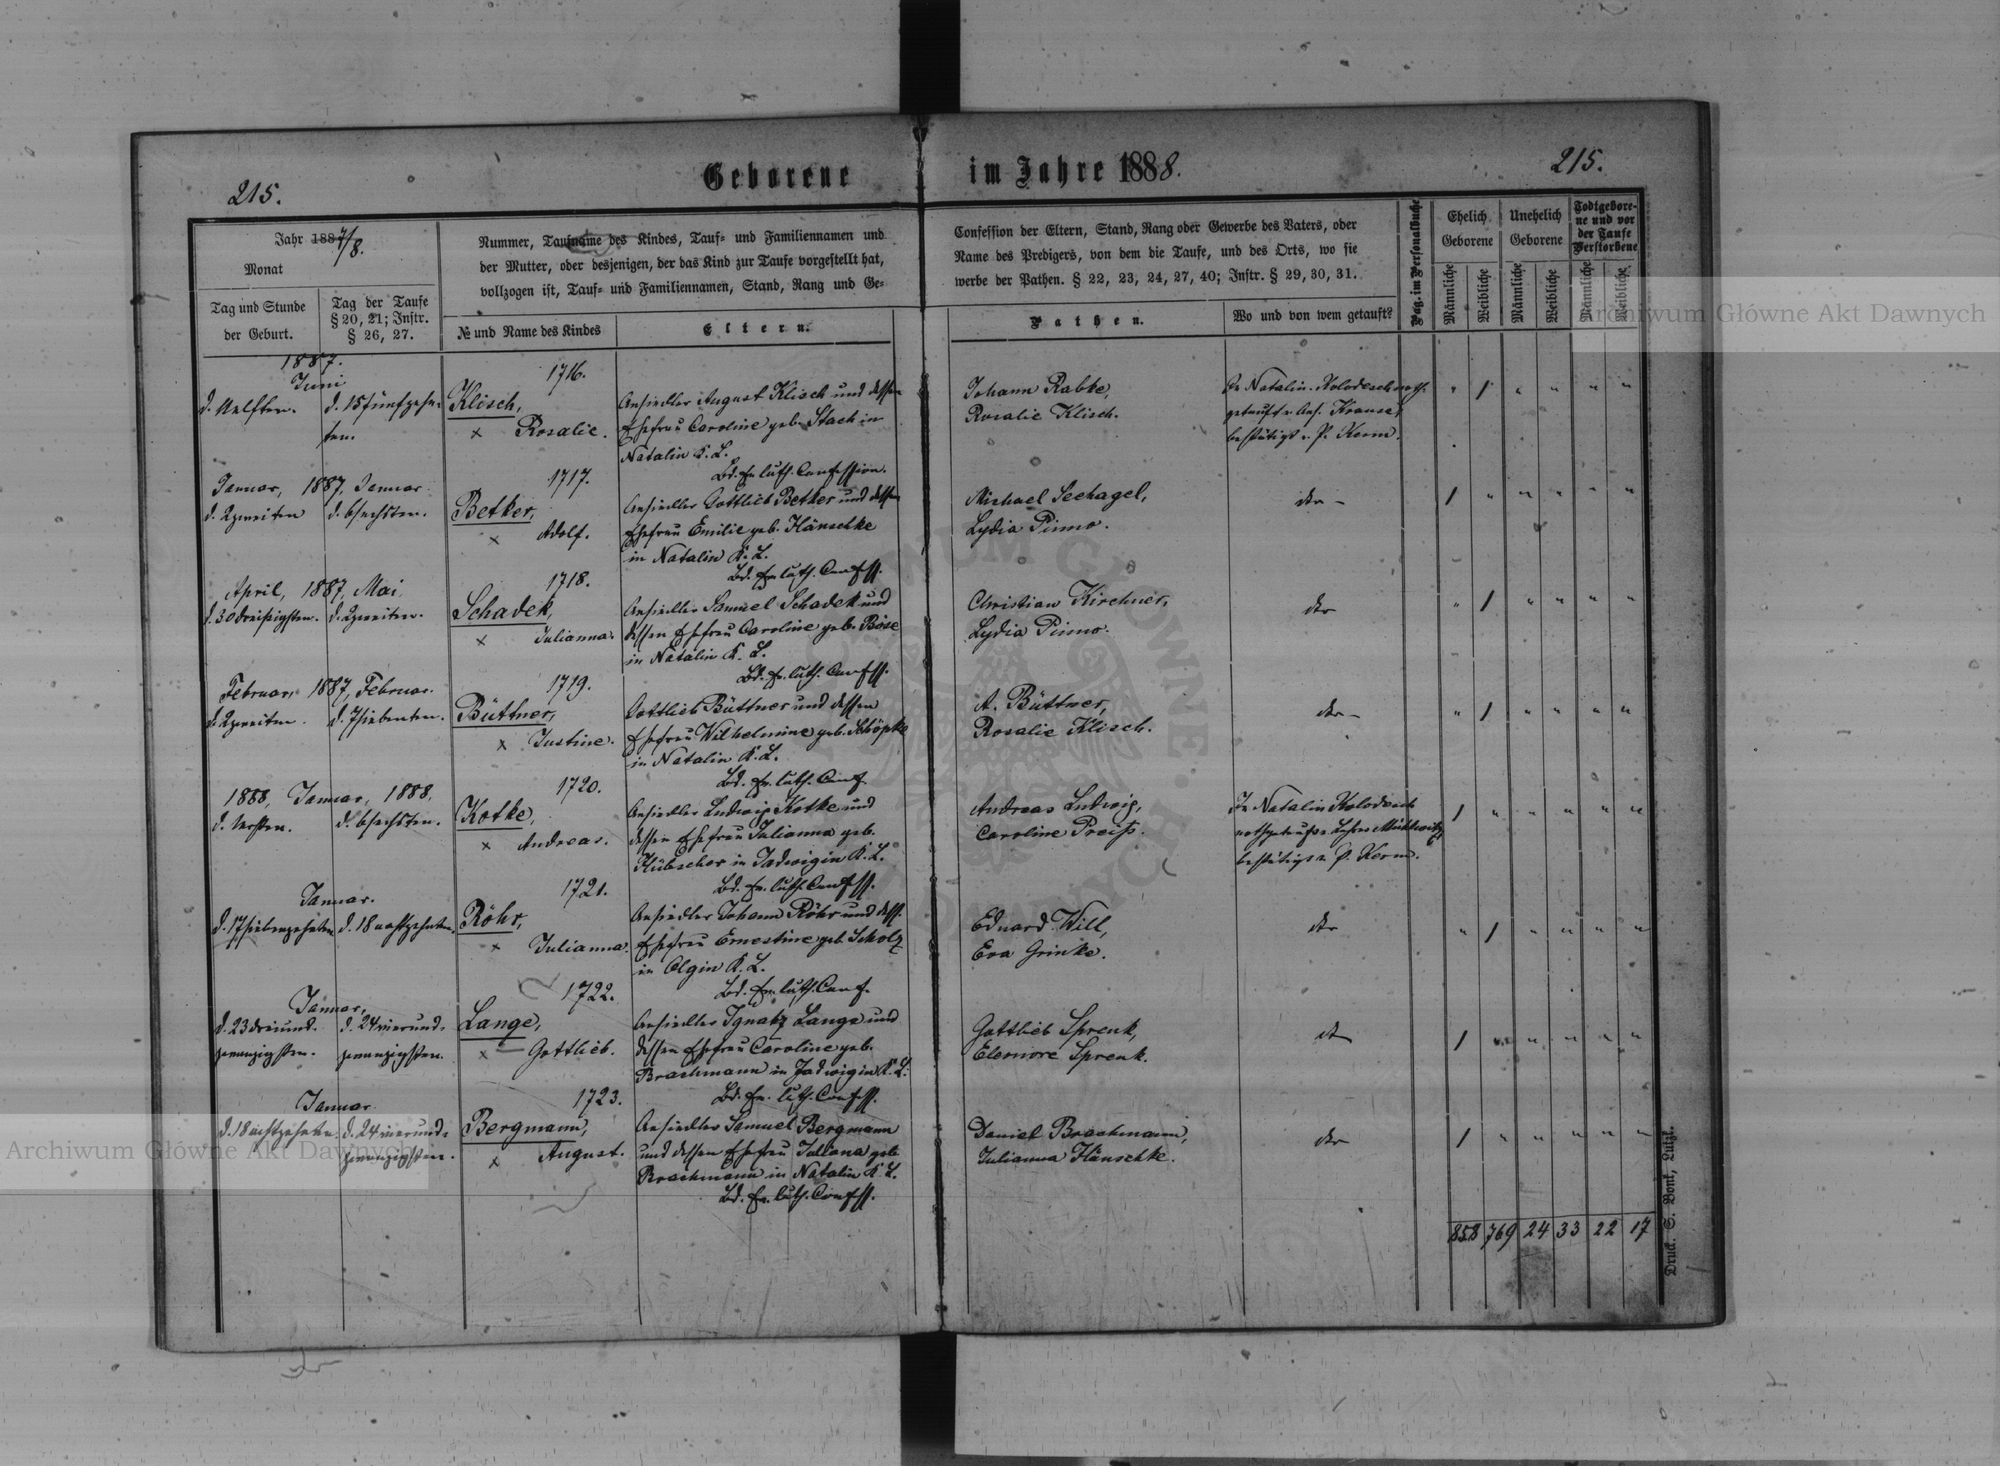 Geborene im Jahre 1888.
215.
215.
Jahr 1887/8.
Monat
Tag und Stunde
der Geburt.
Tag der Taufe
§ 20, 21; Instr.
§ 26, 27.
Nummer, Taufname des Kindes, Tauf- und Familiennamen und
der Mutter, oder desjenigen, der das Kind zur Taufe vorgestellt hat,
vollzogen ist, Tauf- und Familiennamen, Stand, Rang und Ge-
№ und Name des Kindes
Eltern.
Confession der Eltern, Stand, Rang oder Gewerbe des Vaters, oder
Name des Predigers, von dem die Taufe, und des Orts, wo sie
werbe der Pathen. § 22, 23, 24, 27, 40; Instr. § 29, 30, 31.
Pathen.
Wo und von wem getauft?
Pag. im Personalbuche
Ehelich
Geborene
Unehelich
Geborene
Todtgebore-
ne und vor
der Taufe
Verstorbene
Männliche
Weibliche
Männliche
Weibliche
Männliche
Weibliche
1887.
Juni
d. 11 elften.
d. 15 fünfzehn-
ten.
1716.
Klisch,
× Rosalie.
Ansiedler August Klisch und dessen
Ehefrau Caroline geb. Stach in
Natalin K. L.
Bd. Ev. luth. Confession.
Johann Rabke,
Rosalie Klisch.
In Natalin
bestätigt v. P. Kerm.
Januar, 1887, Januar
d. 2 zweiten
d. 6 sechsten.
1717.
Betker,
× Adolf.
Ansiedler Gottlieb Betker und dessen
Ehefrau Emilie geb. Hänschke
in Natalin K. L.
Bd. Ev. luth. Confess.
Michael Seehagel,
Lydia Pimo.
dto
April, 1887, Mai
d. 30 dreißigsten.
d. 2 zweiten.
1718.
Schadek,
× Julianna.
Ansiedler Samuel Schadek und
dessen Ehefrau Caroline geb. Böse
in Natalin K. L.
Bd. Ev. luth. Confess.
Christian Kirchner,
Lydia Pimo.
dto
Februar, 1887, Februar.
d. 2 zweiten.
d. 7 siebenten.
1719.
Büttner,
× Justine.
Gottlieb Büttner und dessen
Ehefrau Wilhelmine geb. Schöpke
in Natalin K. L.
Bd. Ev. luth. Conf.
A. Büttner,
Rosalie Klisch.
dto
1888, Januar, 1888.
d. 1 ersten.
d. 6 sechsten.
1720.
Kotke,
× Andreas.
Ansiedler Ludwig Kotke und
dessen Ehefrau Julianna geb.
Hübscher in Jadwigin K. L.
Bd. Ev. luth. Confess.
Andreas Ludwig,
Caroline Preiß.
In Natalin
bestätigt v. P. Kerm.
Januar.
d. 17 siebenzehnten
d. 18 achtzehnten.
1721.
Röhr,
× Julianna.
Ansiedler Johann Röhr und dess.
Ehefrau Ernestine geb. Scholz
in Olgin K. L.
Bd. Ev. luth. Conf.
Eduard Will,
Eva Grinke.
dto
Januar,
d. 23 dreiund-
zwanzigsten.
d. 24 vierund-
zwanzigsten.
1722.
Lange,
× Gottlieb.
Ansiedler Ignatz Lange und
dessen Ehefrau Caroline geb.
Brachmann in Jadwigin K. L.
Bd. Ev. luth. Confess.
Gottlieb Sprenk,
Eleonore Sprenk.
dto
Januar
d. 18 achtzehnten
d. 24 vierund-
zwanzigsten.
1723.
Bergmann,
× August.
Ansiedler Samuel Bergmann
und dessen Ehefrau Juliana geb.
Brachmann in Natalin K. L.
Bd. Ev. luth. Confess.
Daniel Brachmann,
Julianna Hänschke.
dto
858 769 24 33 22 17
Druck. S. Bonk, Lutzk.
Archiwum Główne Akt Dawnych
Archiwum Główne Akt Dawnych